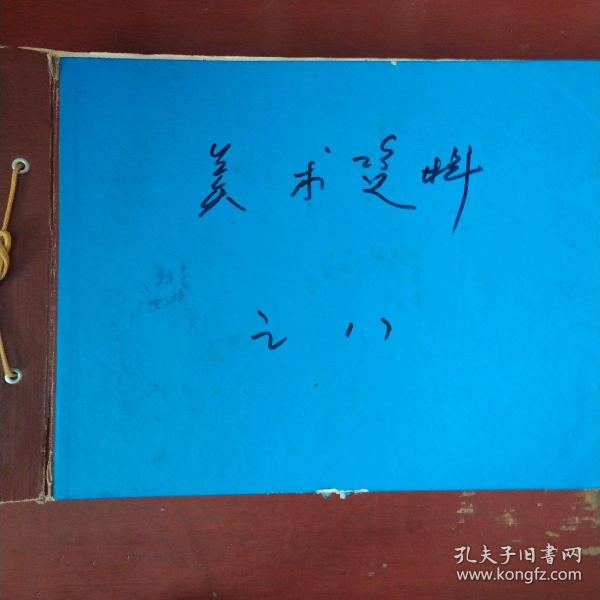 美术资料
之八
孔夫子旧書网
www.kongfz.com